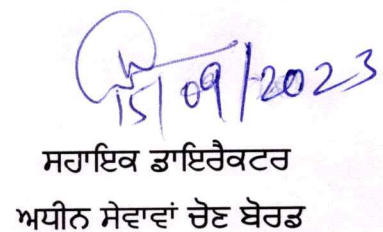 15/09/2023
ਸਹਾਇਕ ਡਾਇਰੈਕਟਰ
ਅਧੀਨ ਸੇਵਾਵਾਂ ਚੋਣ ਬੋਰਡ